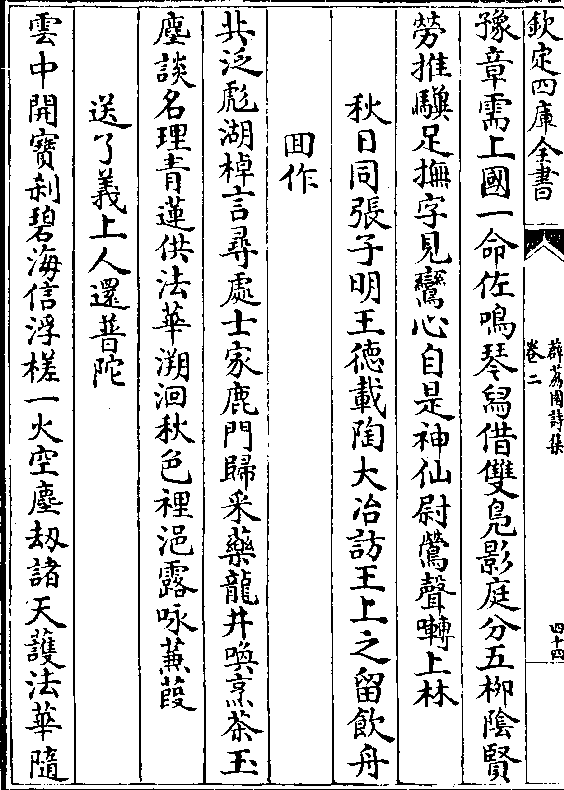 欽定四庫全書
薜荔園詩集
卷二
四十四
豫章需上國一命佐鳴琴舄借雙凫影庭分五柳陰賢
勞推驥足撫字見鸞心自是神仙尉鶯聲囀上林
秋日同張子明王德載陶大冶訪王上之留飲舟
囬作
共泛彪湖棹言尋處士家鹿門歸采藥龍井喚烹茶玉
塵談名理青蓮供法華溯洄秋色裡浥露咏蒹葭
送了義上人還普陀
雲中開寶刹碧海信浮槎一火空塵刼諸天護法華隨